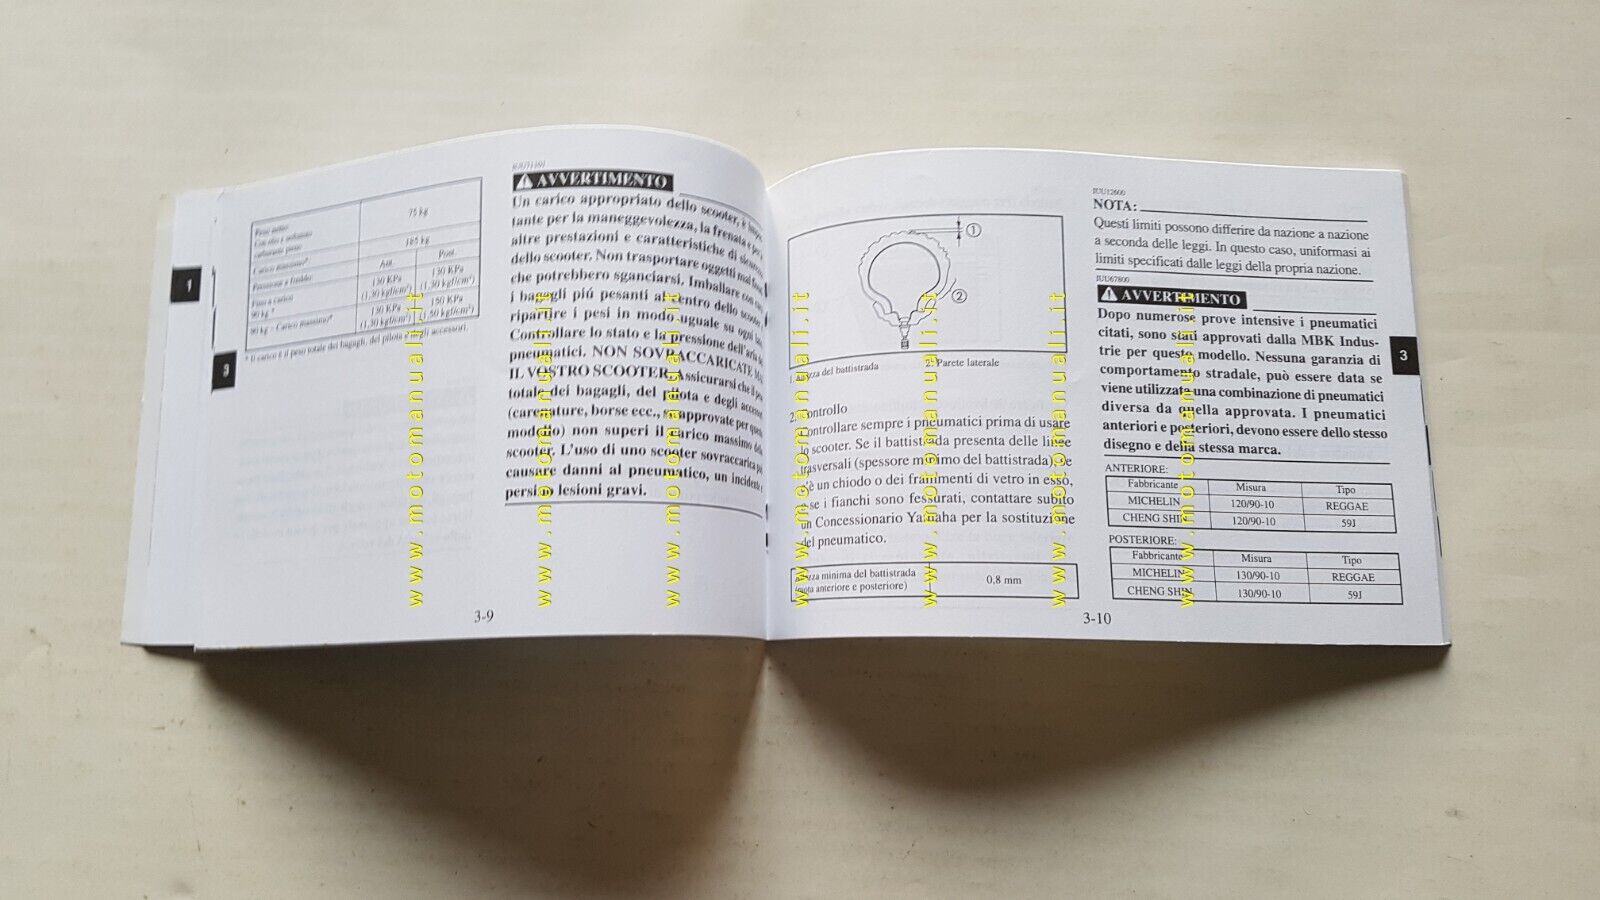 Peso netto:
Con olio e serbatoio
carburante pieno
75 kg
Carico massimo*
185 kg
Pressione a freddo:
Ant.
Post.
Fino a carico
90 kg *
130 KPa
(1,30 kgf/cm²)
130 KPa
(1,30 kgf/cm²)
90 kg ~ Carico massimo*
130 KPa
(1,30 kgf/cm²)
150 KPa
(1,50 kgf/cm²)
* Il carico è il peso totale dei bagagli, del pilota e degli accessori.
1
3
AVVERTIMENTO
Un carico appropriato dello scooter, è
tante per la maneggevolezza, la frenata e
altre prestazioni e caratteristiche di
dello scooter. Non trasportare oggetti mal
che potrebbero sganciarsi. Imballare con
i bagagli piú pesanti al centro dello scooter,
ripartire i pesi in modo uguale su ogni
Controllare lo stato e la pressione dell'aria dei
pneumatici. NON SOVRACCARICATE MAI
IL VOSTRO SCOOTER. Assicurarsi che il
totale dei bagagli, del pilota e degli
(carenature, borse ecc., se approvate per questo
modello) non superi il carico massimo dello
scooter. L'uso di uno scooter sovraccarica può
causare danni al pneumatico, un incidente o
persino lesioni gravi.
3-9
1
2
1. Altezza del battistrada
2. Parete laterale
2. Controllo
Controllare sempre i pneumatici prima di usare
lo scooter. Se il battistrada presenta delle linee
trasversali (spessore minimo del battistrada), se
c'è un chiodo o dei frammenti di vetro in esso,
o se i fianchi sono fessurati, contattare subito
un Concessionario Yamaha per la sostituzione
del pneumatico.
Altezza minima del battistrada
(ruota anteriore e posteriore)
0,8 mm
IUU12600
NOTA:
Questi limiti possono differire da nazione a nazione
a seconda delle leggi. In questo caso, uniformasi ai
limiti specificati dalle leggi della propria nazione.
IUU67800
AVVERTIMENTO
Dopo numerose prove intensive i pneumatici
citati, sono stati approvati dalla MBK Indus-
trie per questo modello. Nessuna garanzia di
comportamento stradale, può essere data se
viene utilizzata una combinazione di pneumatici
diversa da quella approvata. I pneumatici
anteriori e posteriori, devono essere dello stesso
disegno e della stessa marca.
ANTERIORE:
Fabbricante Misura Tipo
MICHELIN 120/90-10 REGGAE
CHENG SHIN 120/90-10 59J
POSTERIORE:
Fabbricante Misura Tipo
MICHELIN 130/90-10 REGGAE
CHENG SHIN 130/90-10 59J
3
3-10
www.motomanuali.it
www.motomanuali.it
www.motomanuali.it
www.motomanuali.it
www.motomanuali.it
www.motomanuali.it
www.motomanuali.it